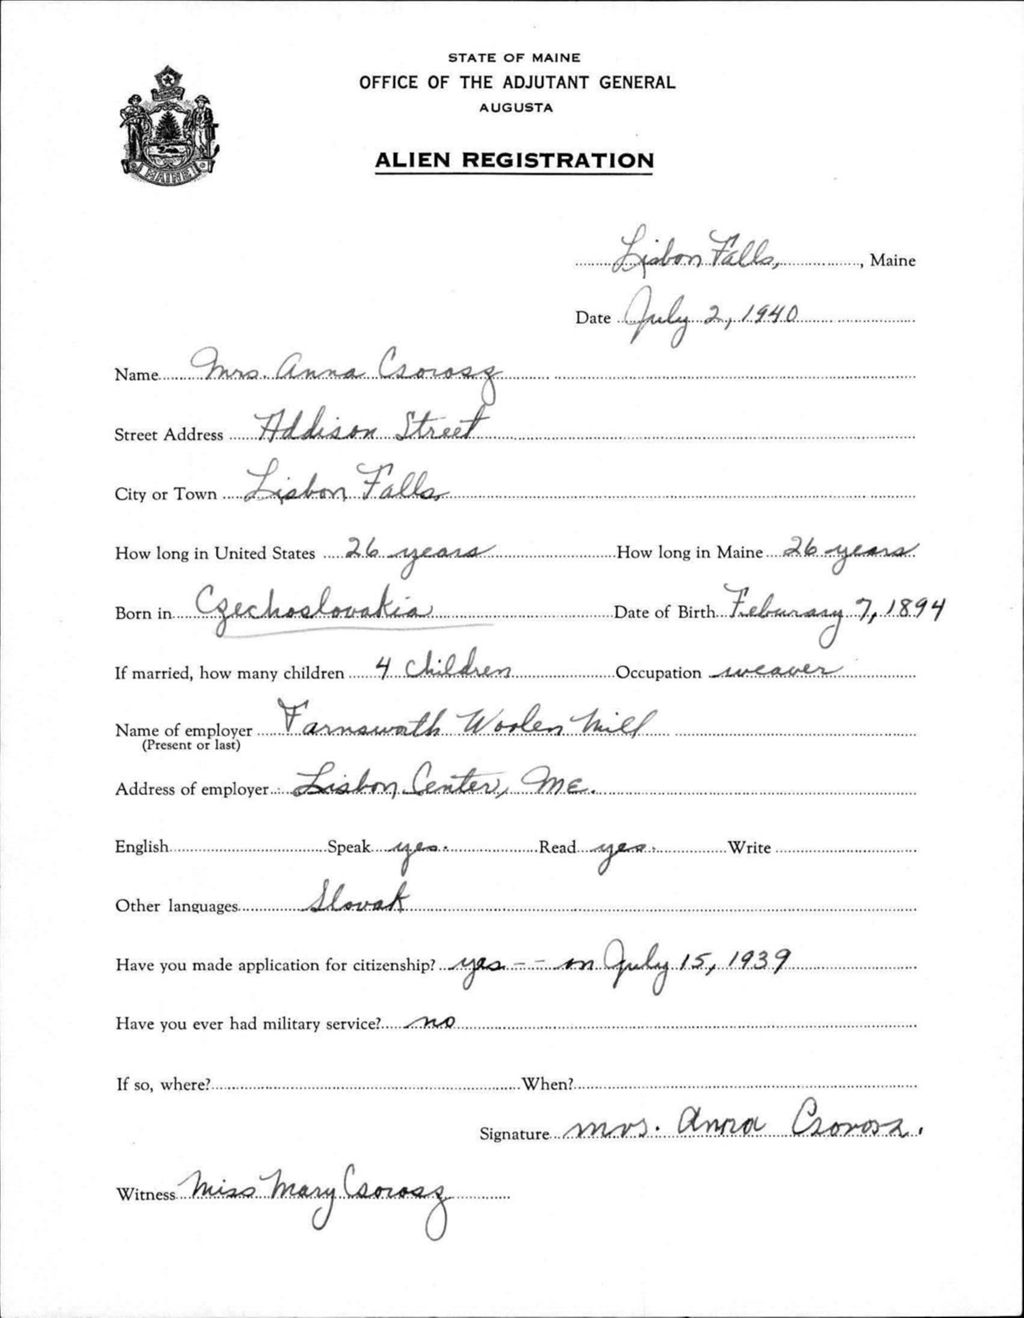 STATE OF MAINE
OFFICE OF THE ADJUTANT GENERAL
AUGUSTA
ALIEN REGISTRATION
MAINE
Lisbon Falls, , Maine
Date July 2, 1940
Name Mrs. Anna Csorosz
Street Address Addison Street
City or Town Lisbon Falls
How long in United States 26 years How long in Maine 26 years
Born in Czechoslovakia Date of Birth Feburary 7, 1894
If married, how many children 4 children Occupation weaver
Name of employer Farnsworth Woolen Mill
(Present or last)
Address of employer Lisbon Center, Me.
English Speak yes. Read yes. Write
Other languages Slovak
Have you made application for citizenship? yes -- on July 15, 1939
Have you ever had military service? no
If so, where? When?
Signature mrs. Anna Csorosz.
Witness Miss Mary Csorosz